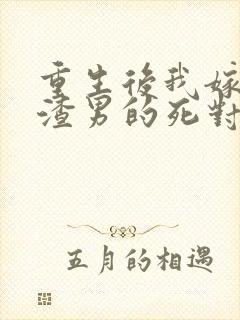 重生後我嫁
渣男的死對
五月的相遇